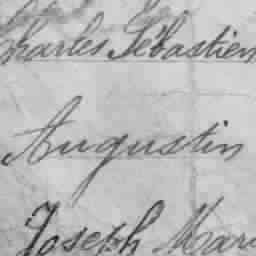 Charles Sébastien
Augustin
Joseph Mar